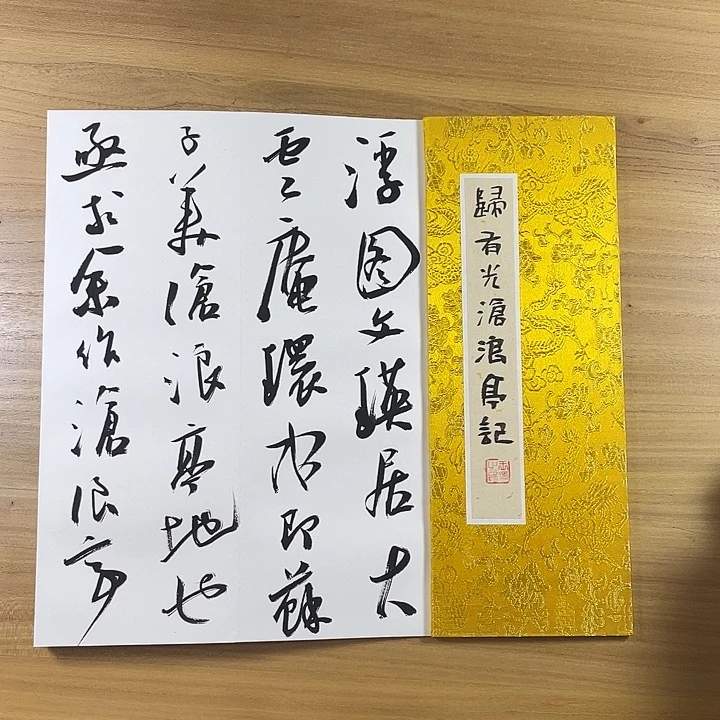 歸有光滄浪亭記
浮圖文瑛居大
雲庵環水即蘇
子美滄浪亭地也
亟求余作滄浪亭